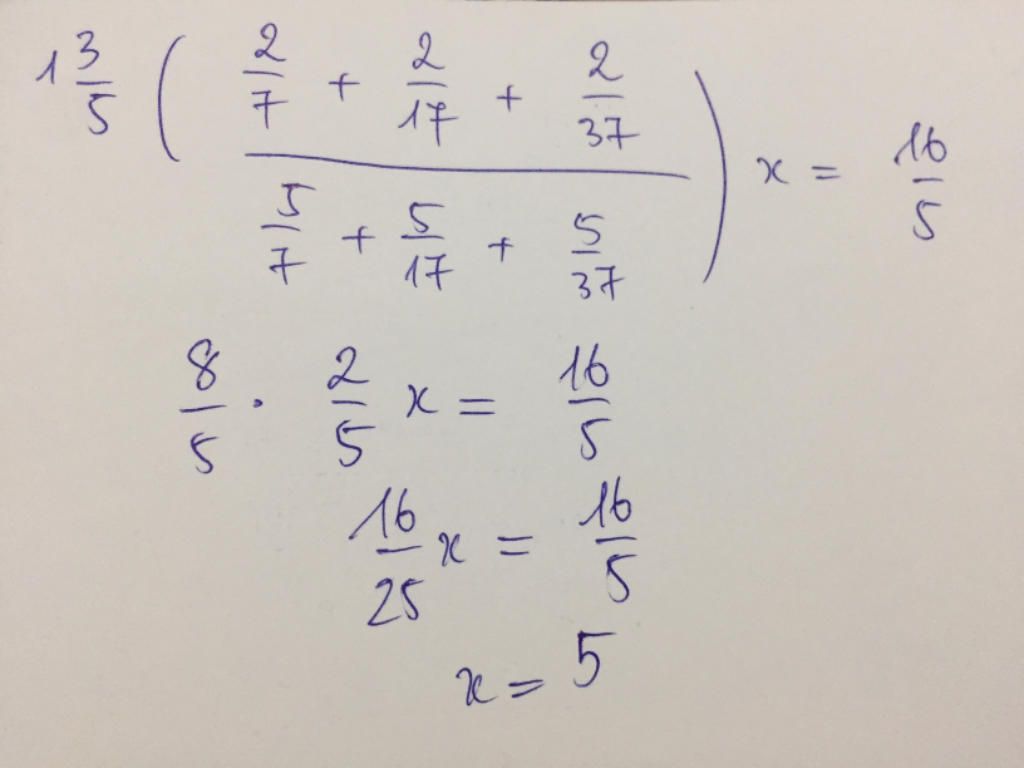 1 3/5 ( (2/7 + 2/17 + 2/37) / (5/7 + 5/17 + 5/37) ) x = 16/5
8/5 · 2/5 x = 16/5
16/25 x = 16/5
x = 5